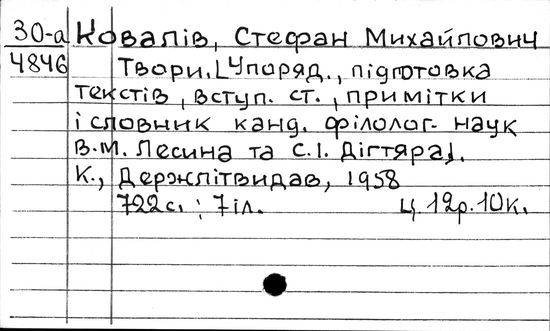 30-а Ковалів, Стефан Михайлович
4846 Твори. [Упоряд., підготовка
текстів, вступ. ст., примітки
і словник канд. філолог. наук
В.М. Лесина та С.І. Дігтяра].
К., Держлітвидав, 1958
722с.; 7іл. Ц. 12р. 10к.